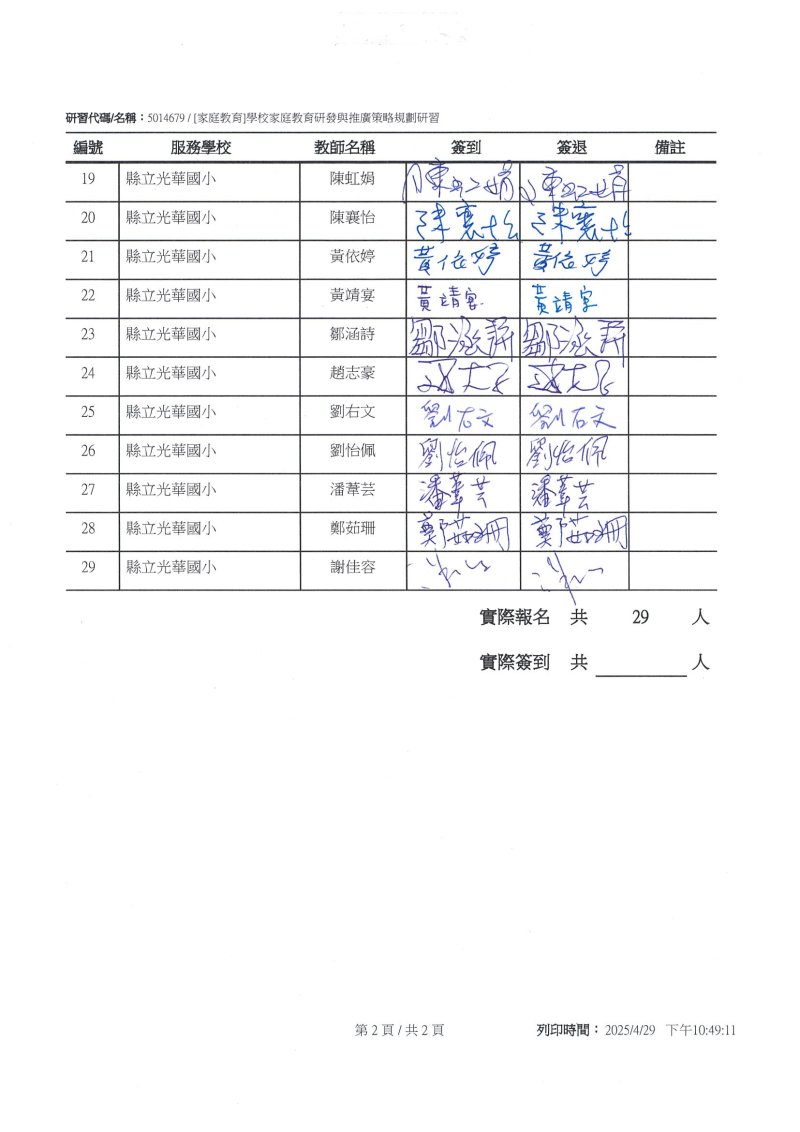 研習代碼/名稱：5014679 / [家庭教育]學校家庭教育研發與推廣策略規劃研習
編號 服務學校 教師名稱 簽到 簽退 備註
19 縣立光華國小 陳虹娟 陳虹娟 陳虹娟
20 縣立光華國小 陳襄怡 陳襄怡 陳襄怡
21 縣立光華國小 黃依婷 黃依婷 黃依婷
22 縣立光華國小 黃靖宴 黃靖宴 黃靖宴
23 縣立光華國小 鄒涵詩 鄒涵詩 鄒涵詩
24 縣立光華國小 趙志豪
25 縣立光華國小 劉右文 劉右文 劉右文
26 縣立光華國小 劉怡佩 劉怡佩 劉怡佩
27 縣立光華國小 潘葦芸 潘葦芸 潘葦芸
28 縣立光華國小 鄭茹珊 鄭茹珊 鄭茹珊
29 縣立光華國小 謝佳容
實際報名 共 29 人
實際簽到 共 人
第 2 頁 / 共 2 頁 列印時間：2025/4/29 下午10:49:11